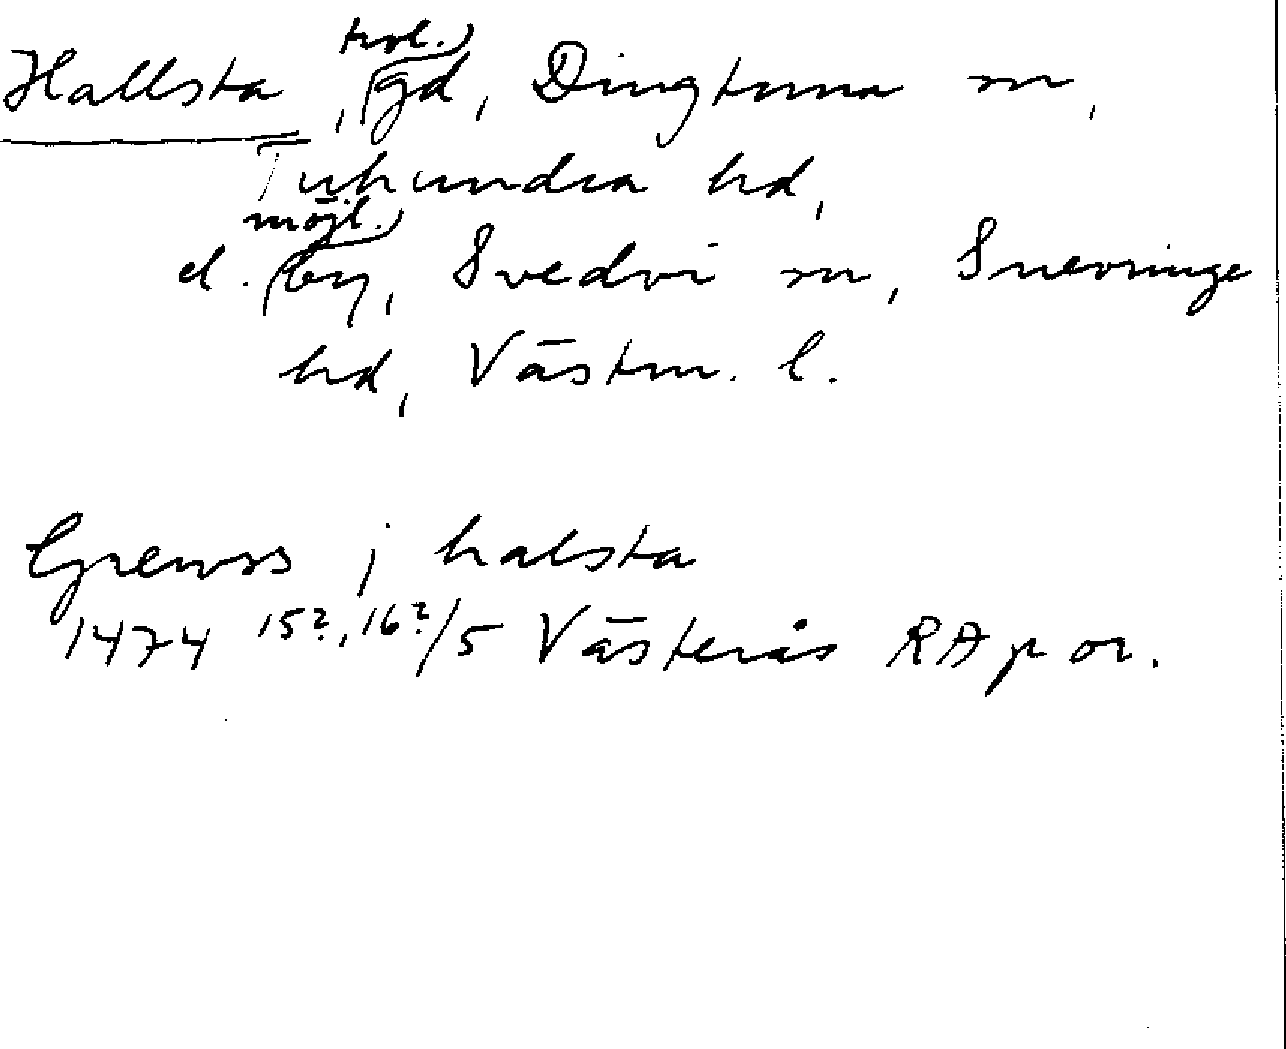 Hallsta, trol. gd, Dingtuna sn,
Tuhundra hd,
el. möjl. by, Svedvi sn, Snevringe
hd, Västm. l.
Grenss j halsta
1474 15?, 16?/5 Västerås RAp or.